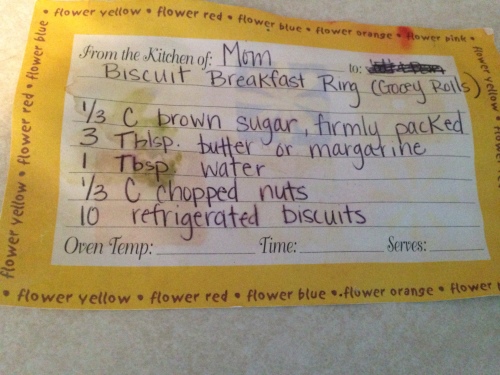 • flower yellow • flower red • flower blue • flower orange • flower pink •
From the Kitchen of: Mom to:
Biscuit Breakfast Ring (Gooey Rolls)
1/3 C brown sugar, firmly packed
3 Tblsp. butter or margarine
1 Tbsp. water
1/3 C chopped nuts
10 refrigerated biscuits
Oven Temp: Time: Serves:
flower yellow • flower red • flower blue
flower yellow
• flower yellow • flower red • flower blue • flower orange • flower